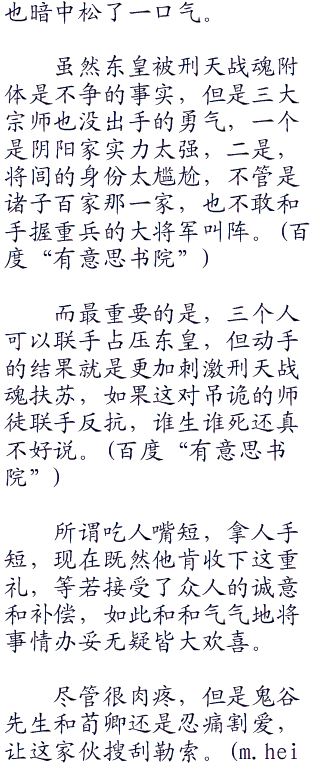 也暗中松了一口气。
虽然东皇被刑天战魂附
体是不争的事实，但是三大
宗师也没出手的勇气，一个
是阴阳家实力太强，二是，
将闾的身份太尴尬，不管是
诸子百家那一家，也不敢和
手握重兵的大将军叫阵。(百
度“有意思书院”)
而最重要的是，三个人
可以联手占压东皇，但动手
的结果就是更加刺激刑天战
魂扶苏，如果这对吊诡的师
徒联手反抗，谁生谁死还真
不好说。(百度“有意思书
院”)
所谓吃人嘴短，拿人手
短，现在既然他肯收下这重
礼，等若接受了众人的诚意
和补偿，如此和和气气地将
事情办妥无疑皆大欢喜。
尽管很肉疼，但是鬼谷
先生和荀卿还是忍痛割爱，
让这家伙搜刮勒索。(m.hei